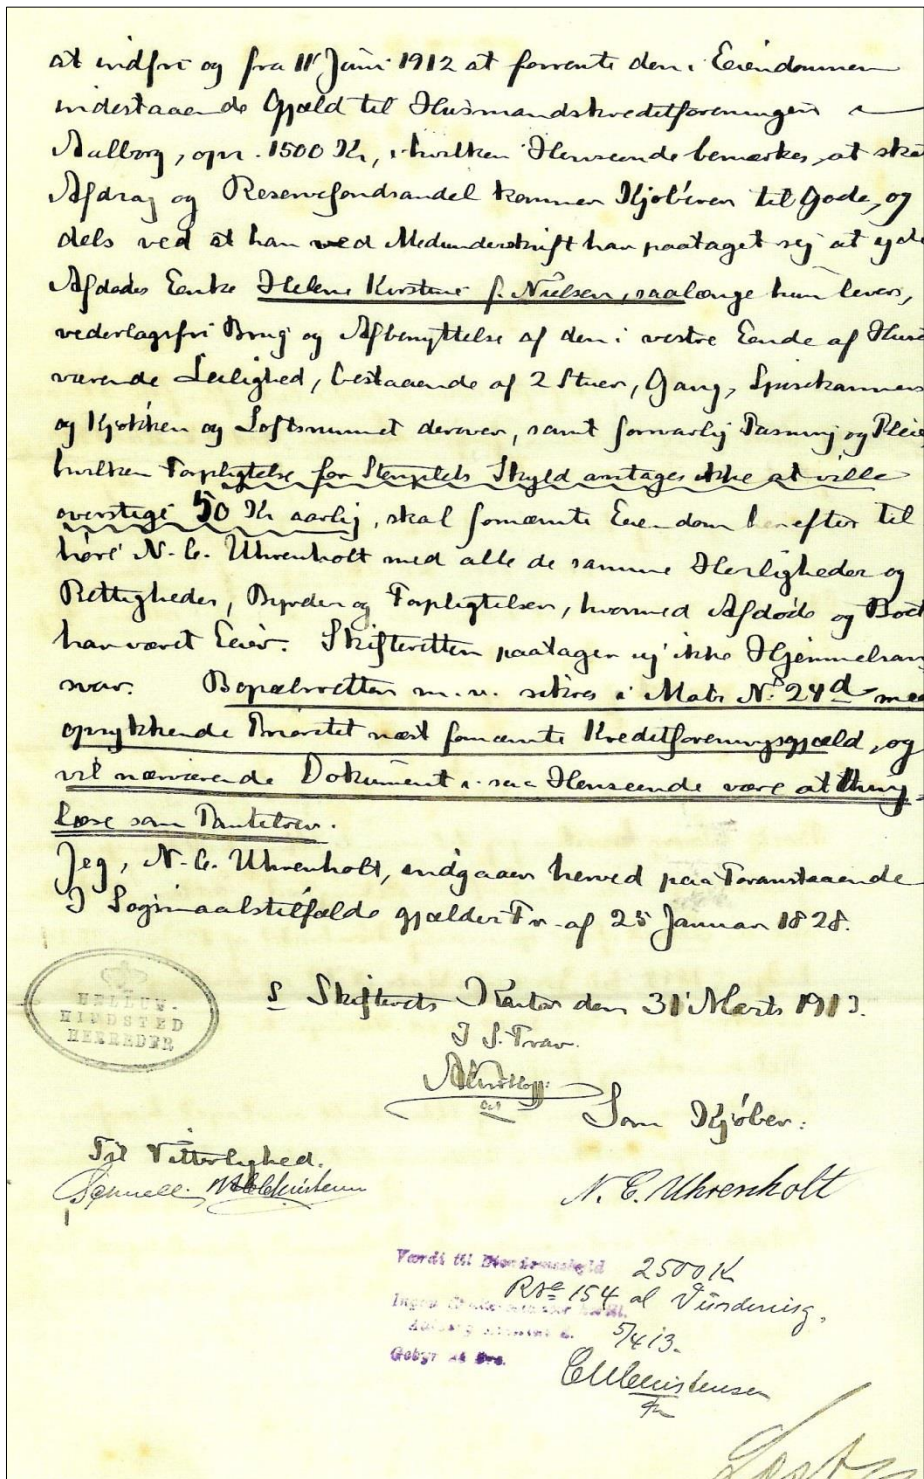 at indfri og fra 11' Juni 1912 at forrente den i Eiendommen
indestaaende Gjæld til Husmandskreditforeningen i
Aalborg, opr. 1500 Kr, i hvilken Henseende bemærkes, at ske
Afdrag og Reservefondsandel kommer Kjøberen til Gode, og
dels ved at han ved Medunderskrift har paataget sig at yde
Afdødes Enke Helene Kirstine f. Nielsen, saalænge hun lever,
vederlagsfri Brug og Afbenyttelse af den i vestre Ende af Huse
værende Leilighed, bestaaende af 2 Stuer, Gang, Spisekammer
og Kjøkken og Loftsrummet derover, samt forsvarlig Pasning og Pleie
hvilken Forpligtelse for Stemplets Skyld antages ikke at ville
overstige 50 Kr aarlig, skal fornævnte Eiendom herefter til
høre N. C. Uhrenholt med alle de samme Herligheder og
Rettigheder, Byrder og Forpligtelser, hvormed Afdøde og Boet
har været Eier. Skifteretten paatager sig ikke Hjemmelsan
svar. Bopælsretten m. v. sikres i Matr Nº 24d med
oprykkende Prioritet næst fornævnte Kreditforeningsgjæld, og
vil nærværende Dokument i saa Henseende være at thing
læse som Pantebrev.
Jeg, N. C. Uhrenholt, indgaaer herved paa Foranstaaende
I Søgsmaalstilfælde gjælder Fr. af 25 Januar 1828.
HELLUM-
HINDSTED
HERREDER
Skifterets Kontor den 31' Marts 1913.
I S. Frav.
Som Kjøber:
Til Vitterlighed.
N. C. Uhrenholt
Værdi til Eiendomsskyld 2500 K
R Nº 154 al Vurdering.
5/4 13.
Gebyr